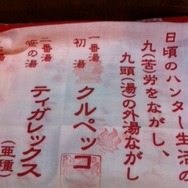 日頃のハンター生活の
九(苦労をながし、
九頭(湯の外湯ながし
一番湯
初湯
クルペッコ
二番湯
笹の湯
ティガレックス
(亜種)